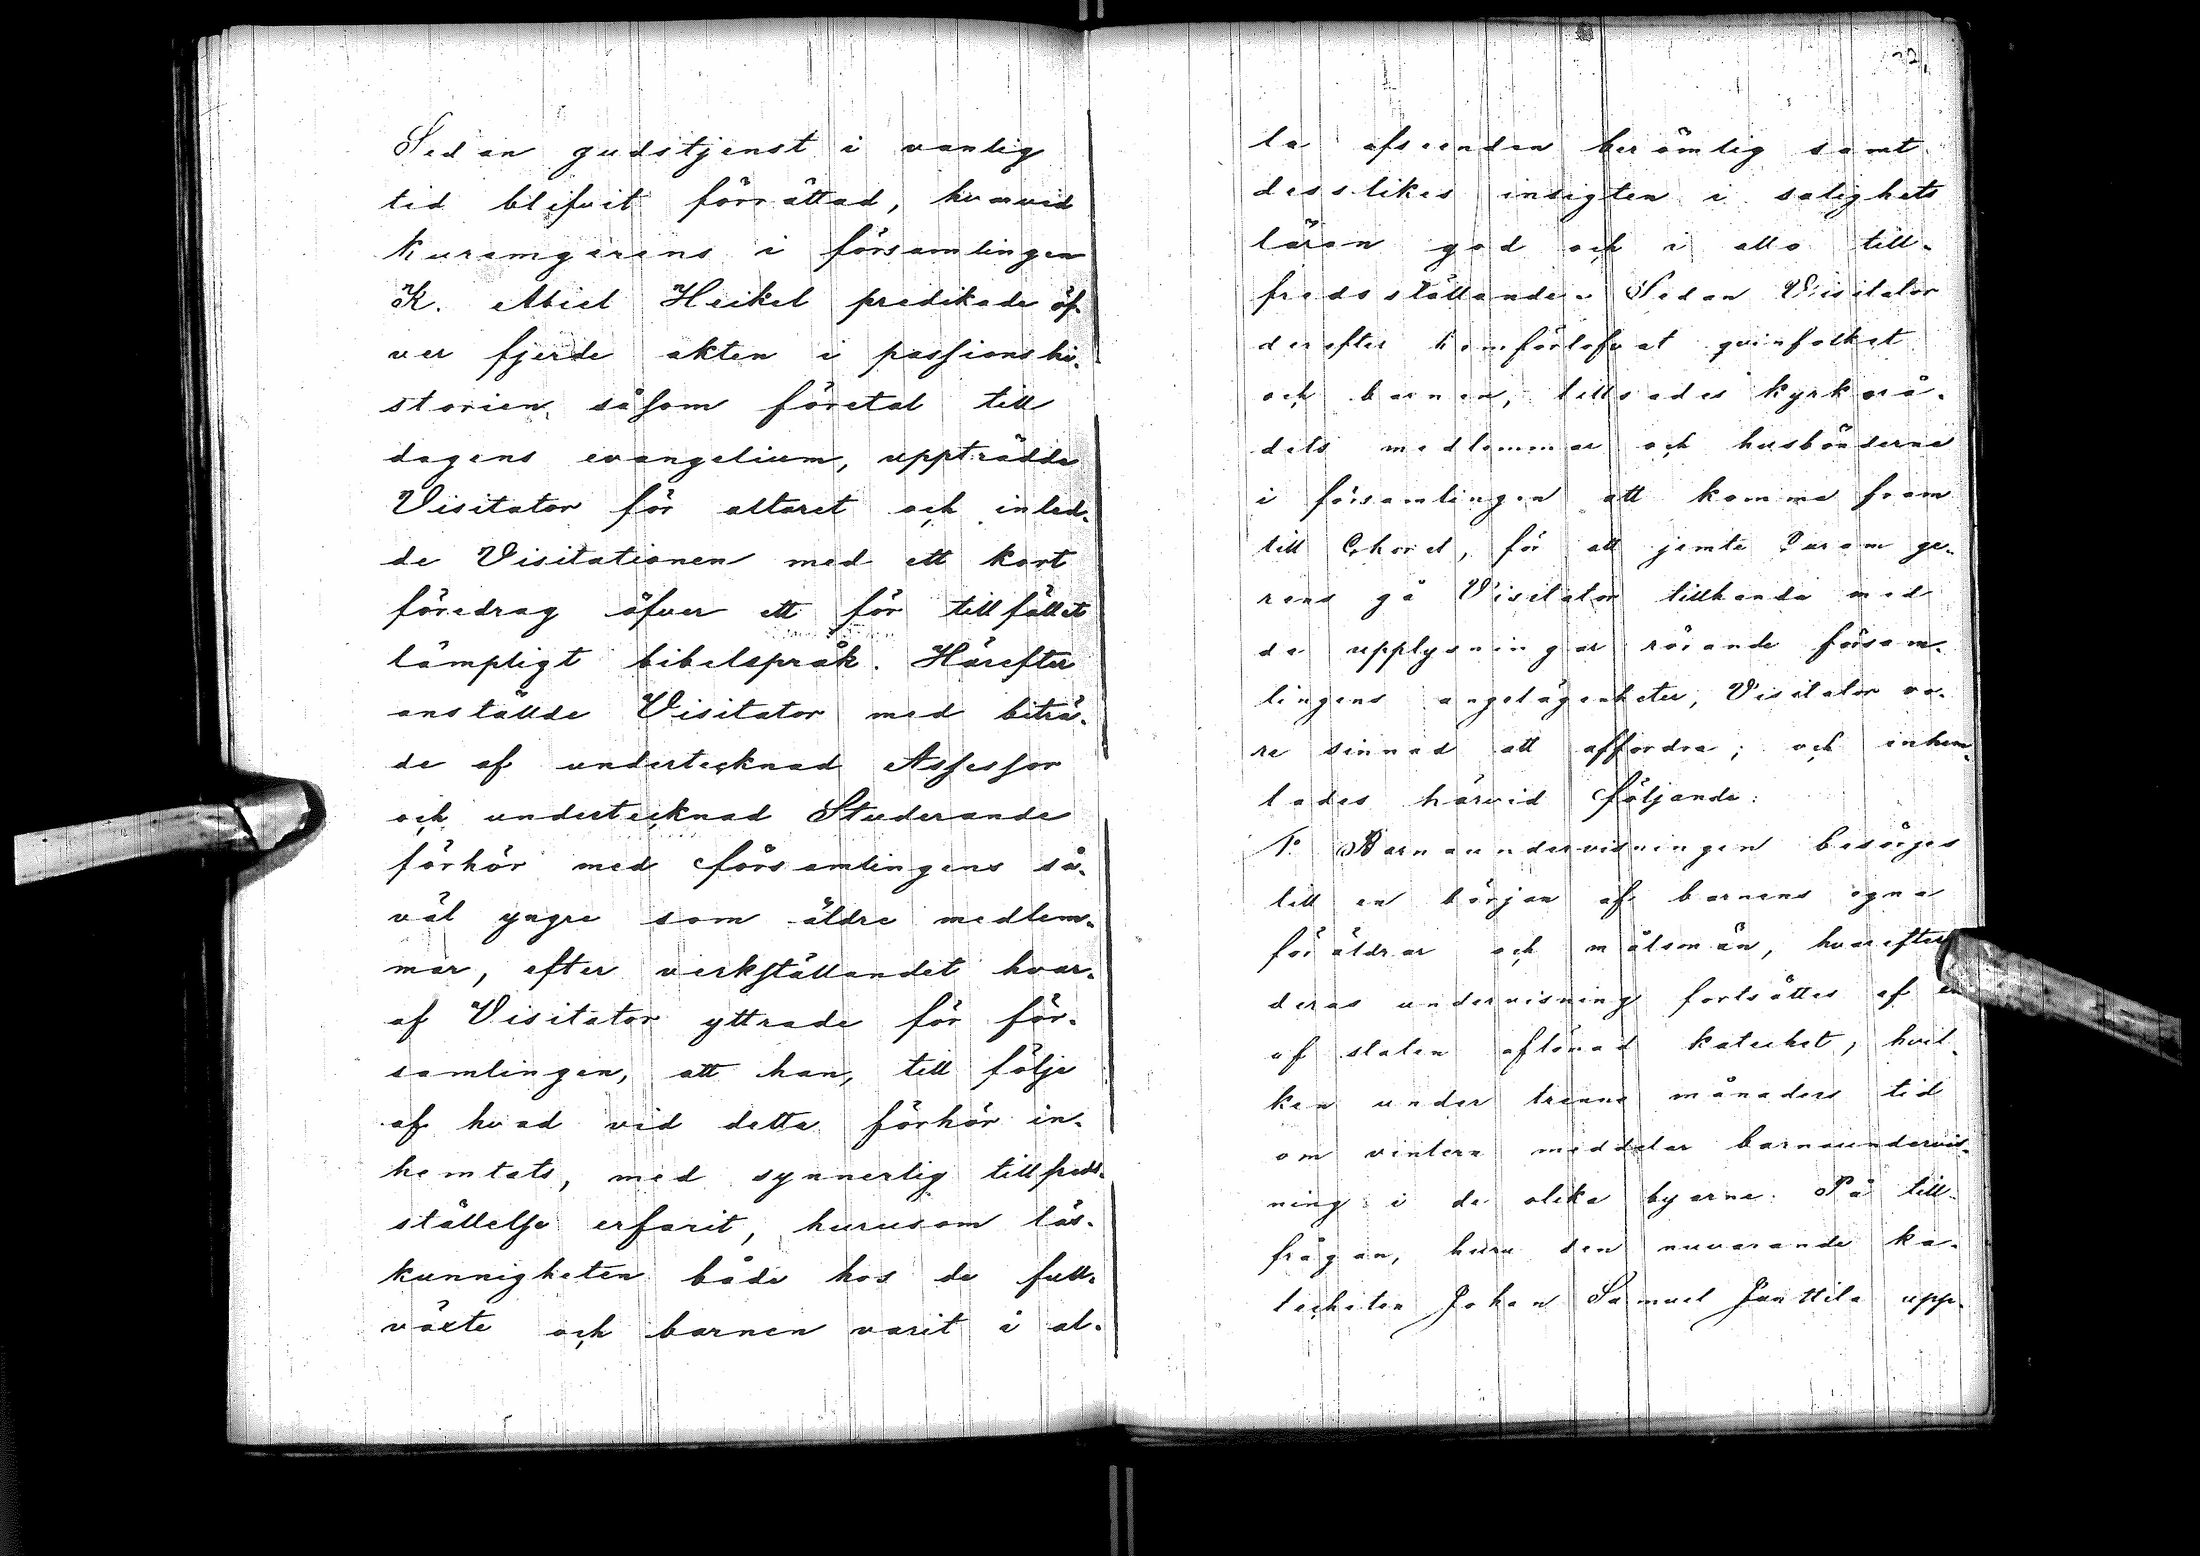 Sedan gudstjenst i vanlig
tid blifvit förrättad, hvarvid
kuramgerens i församlingen
K. Abiel Heikel predikade öf-
ver fjerde akten i passionshi-
storien såsom företal till
dagens evangelium, uppträdde
Visitator för altaret och inled-
de Visitationen med ett kort
föredrag öfver ett för tillfället
lämpligt bibelspråk. Härefter
anstälde Visitator med biträ-
de af undertecknad Assessor
och undertecknad Studerande
förhör med församlingens så-
väl yngre som äldre medlem-
mar, efter verkställandet hvar-
af Visitator yttrade för för-
samlingen, att han, till följe
af hvad vid detta förhör in-
hemtats, med synnerlig tillfreds-
ställelse erfarit, hurusom läs-
kunnigheten både hos de full-
växte och barnen varit i al-
22.
la afseenden berömlig samt
desslikes insigten i salighets
läran god och i allo till-
fredsställande. Sedan Visitator
derefter hemförlofvat qvinfolket
och barnen, tillsades kyrkorå-
dets medlemmar och husbönderne
i församlingen att komma fram
till Choret, för att jemte Curam ge-
rens gå Visitator tillhanda med
de upplysningar rörande försam-
lingens angelägenheter, Visitator vo-
re sinnad att affordra; och inhem-
tades härvid följande:
1:o Barnaundervisningen besörjes
till en början af barnens egna
föräldrar och målsmän, hvarefter
deras undervisning fortsättes af en
af staten aflönad kateket, hvil-
ken under trenne månaders tid
om vintern meddelar barnaundervis-
ning i de olika byarne. På till-
frågan, huru den nuvarande ka-
techeten Johan Samuel Junttila upp-